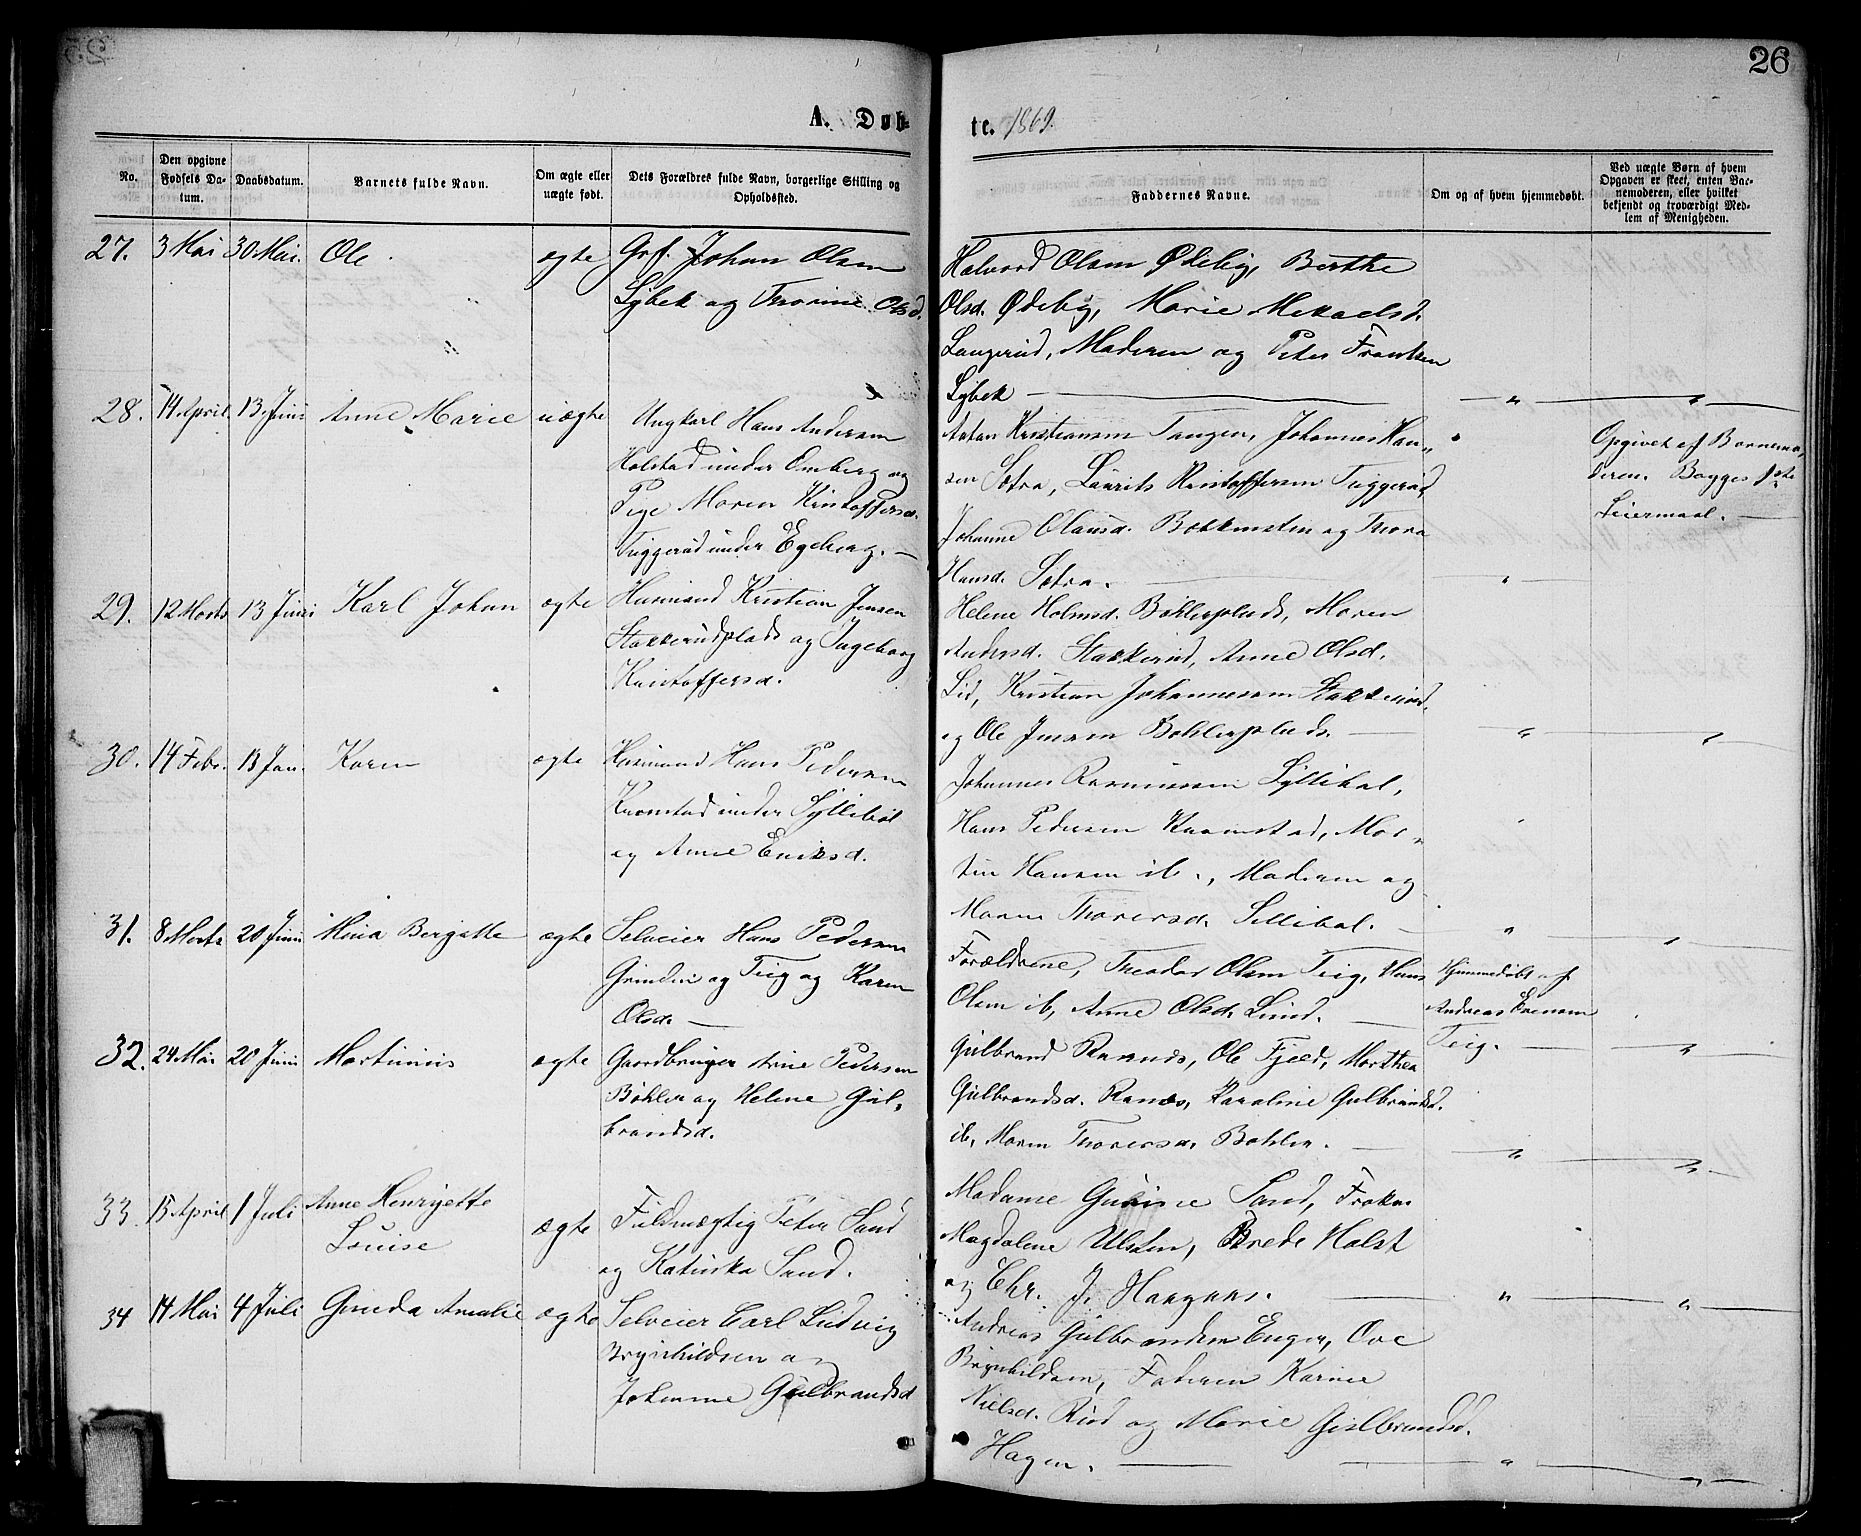 26
A. Døb-
te. 1869.
No.
Den opgivne Fødsels Da-
tum.
Daabsdatum.
Barnets fulde Navn.
Om ægte eller
uægte født.
Dets Forældres fulde Navn, borgerlige Stilling og
Opholdssted.
Faddernes Navne.
Om og af hvem hjemmedøbt.
Ved uægte Børn af hvem
Opgaven er skeet, enten Bar-
nemoderen, eller hvilket
bekjendt og troværdigt Med-
lem af Menigheden.
27. 3 Mai 30 Mai. Ole ægte
Grf. Johan Olsen
Lybek og Thorine Olsd.
Halvord Olsen Ødeby, Berthe
Olsd. Ødeby, Marie Mekaelsd.
Langerud, Moderen og Peter Frantsen
Lybek — " "
28. 14 April. 13 Juni Anne Marie uægte
Ungkarl Hans Andersen
Holstad under Omberg og
Pige Maren Kristoffersd.
Tuggerud under Egeberg. —
Anton Kristiansen Tangen, Johannes Han-
sen Sætra, Laurits Kristoffersen Tuggerud,
Johanne Olausd. Bekkensten og Thora
Hansd. Sætra. — "
Opgivet af Barnemo-
deren. Begges 1ste
Leiermaal. —
29. 12 Marts 13 Juni Karl Johan ægte
Husmand Kristian Jensen
Stakkerudplads og Ingeborg
Kristoffersd.
Helene Holmsd. Böhlerplads, Maren
Andersd. Stakkerud, Anne Olsd.
Lid, Kristian Johannesen Stakkerud,
og Ole Jensen Bøhlerplads. — " "
30. 14 Febr. 13 Jun. Karen ægte
Husmand Hans Pedersen
Kvornstad under Syllibøl
og Anne Eriksd.
Johannes Rasmussen Syllibøl,
Hans Pedersen Kvarnstad, Mar-
tin Hansen ib., Moderen og
Maren Thorersd. Sillibøl. — " "
31. 8 Marts 20 Juni Mina Bergitte ægte
Selveier Hans Pedersen
Grinden og Teig og Karen
Olsd. —
Forældrene, Theodor Olsen Teig, Hans
Olsen ib, Anne Olsd. Lund. —
Hjemmedøbt af
Andreas Evensen
Teig. — "
32. 24 Mai 20 Juni Martinius ægte
Gaardbruger Arne Pedersen
Böhler og Helene Gul-
brandsd.
Gulbrand Ranæs, Ole Fjeld, Marthea
Gulbrandsd. Ranæs, Karoline Gulbrandsd.
ib, Maren Thorersd. Bøhler. — " "
33. 15 April 1 Juli Anne Henryette
Louise ægte
Fuldmægtig Peter Sand
og Katinka Sand.
Madame Gurine Sand, Frøken
Magdalene Ulsten, Brede Holst
og Chr. J. Haagaas. — " "
34 14 Mai 4 Juli Gunda Amalie ægte
Selveier Carl Ludvig
Brynhildsen og
Johanne Gulbrandsd
Andreas Gulbrandsen Enger, Ove
Brynhildsen, Faderen Karine
Nielsd. Riod og Marie Gislbrandsd.
Hagen. — " "